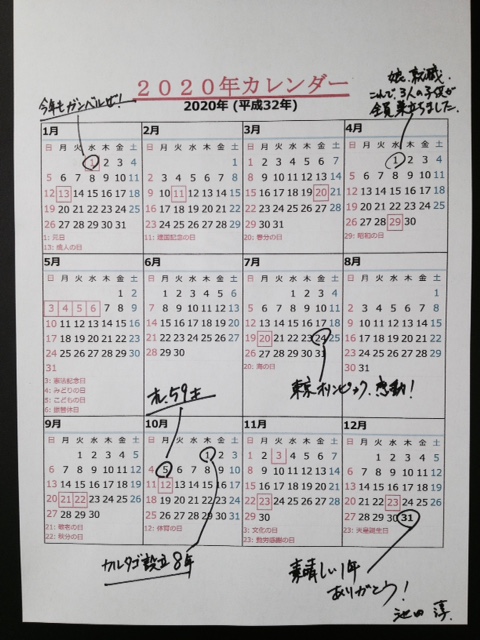 ２０２０年カレンダー
2020年 (平成32年)
今年もガンバルぜ！
娘、就職。
これで、3人の子供が
全員巣立ちました。
1月
日 月 火 水 木 金 土
1 2 3 4
5 6 7 8 9 10 11
12 13 14 15 16 17 18
19 20 21 22 23 24 25
26 27 28 29 30 31
1: 元日
13: 成人の日
2月
日 月 火 水 木 金 土
1
2 3 4 5 6 7 8
9 10 11 12 13 14 15
16 17 18 19 20 21 22
23 24 25 26 27 28 29
11: 建国記念の日
3月
日 月 火 水 木 金 土
1 2 3 4 5 6 7
8 9 10 11 12 13 14
15 16 17 18 19 20 21
22 23 24 25 26 27 28
29 30 31
20: 春分の日
4月
日 月 火 水 木 金 土
1 2 3 4
5 6 7 8 9 10 11
12 13 14 15 16 17 18
19 20 21 22 23 24 25
26 27 28 29 30
29: 昭和の日
5月
日 月 火 水 木 金 土
1 2
3 4 5 6 7 8 9
10 11 12 13 14 15 16
17 18 19 20 21 22 23
24 25 26 27 28 29 30
31
3: 憲法記念日
4: みどりの日
5: こどもの日
6: 振替休日
6月
日 月 火 水 木 金 土
1 2 3 4 5 6
7 8 9 10 11 12 13
14 15 16 17 18 19 20
21 22 23 24 25 26 27
28 29 30
7月
日 月 火 水 木 金 土
1 2 3 4
5 6 7 8 9 10 11
12 13 14 15 16 17 18
19 20 21 22 23 24 25
26 27 28 29 30 31
20: 海の日
8月
日 月 火 水 木 金 土
1
2 3 4 5 6 7 8
9 10 11 12 13 14 15
16 17 18 19 20 21 22
23 24 25 26 27 28 29
30 31
オレ、59才
東京オリンピック、感動！
9月
日 月 火 水 木 金 土
1 2 3 4 5
6 7 8 9 10 11 12
13 14 15 16 17 18 19
20 21 22 23 24 25 26
27 28 29 30
21: 敬老の日
22: 秋分の日
10月
日 月 火 水 木 金 土
1 2 3
4 5 6 7 8 9 10
11 12 13 14 15 16 17
18 19 20 21 22 23 24
25 26 27 28 29 30 31
12: 体育の日
11月
日 月 火 水 木 金 土
1 2 3 4 5 6 7
8 9 10 11 12 13 14
15 16 17 18 19 20 21
22 23 24 25 26 27 28
29 30
3: 文化の日
23: 勤労感謝の日
12月
日 月 火 水 木 金 土
1 2 3 4 5
6 7 8 9 10 11 12
13 14 15 16 17 18 19
20 21 22 23 24 25 26
27 28 29 30 31
23: 天皇誕生日
カルタゴ設立8年
素晴しい1年
ありがとう！
池田 淳